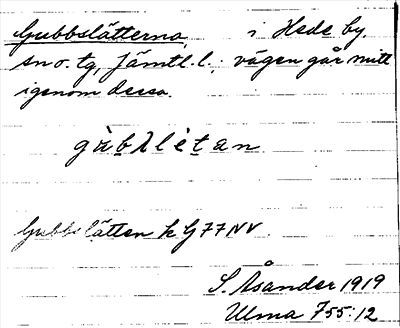 Gubbslätterna, i Hede by,
sn o. tg, Jämtl. l.; vägen går mitt
igenom dessa.
gùbλètan
Gubbslätten k G77NV.
S. Åsander 1919
Ulma 755:12